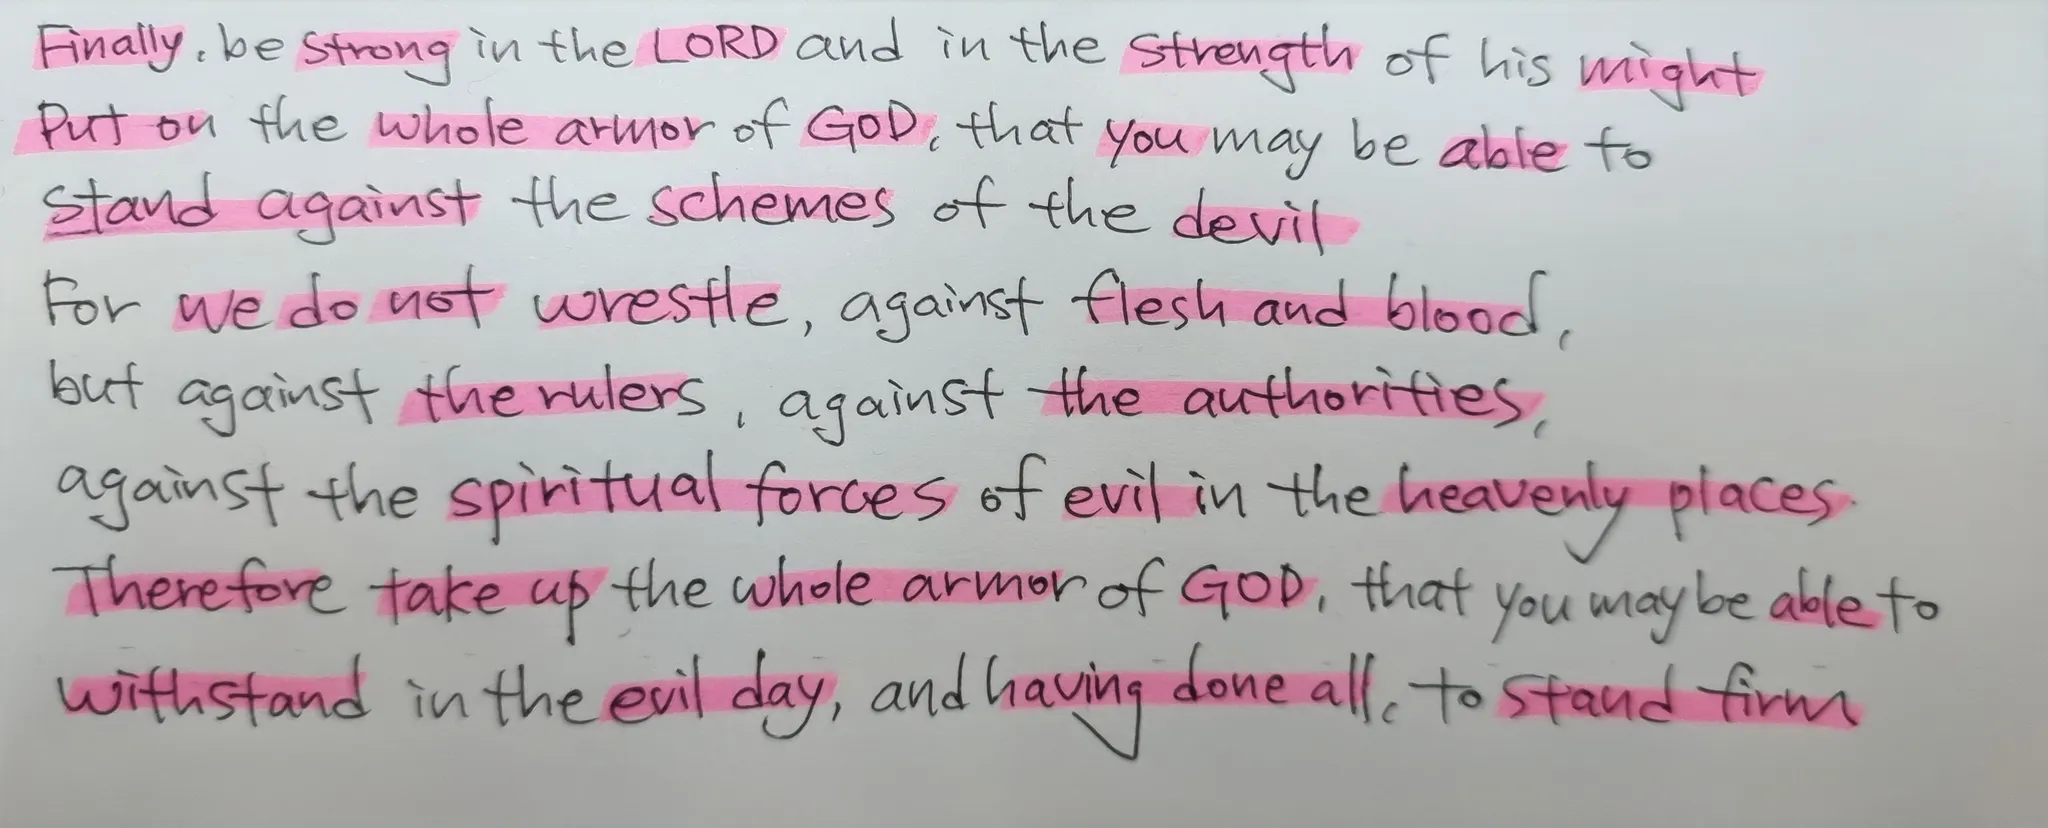 Finally, be strong in the LORD and in the strength of his might
Put on the whole armor of GOD, that you may be able to
stand against the schemes of the devil
For we do not wrestle, against flesh and blood,
but against the rulers, against the authorities,
against the spiritual forces of evil in the heavenly places.
Therefore take up the whole armor of GOD, that you may be able to
withstand in the evil day, and having done all, to stand firm